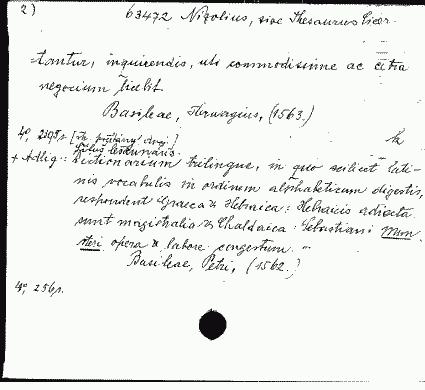 2)
63472 Nizolius, sive Thesaurus Cicer-
tantur, inquirendis, uti commodissime ac citra
negocium liceat.
Basileae, Hervagius, (1563.)
4°,
+ Adlig.: Dictionarium trilingue, in quo scilicet lati-
nis vocabulis in ordinem alphabeticum digestis,
respondent Graeca & Hebraica: Hebraicis adiecta
sunt magistralia & Chaldaica: Sebastiani Mun
steri opera & labore congestum. "
Basileae, Petri, (1562.)
4°, 256 p.